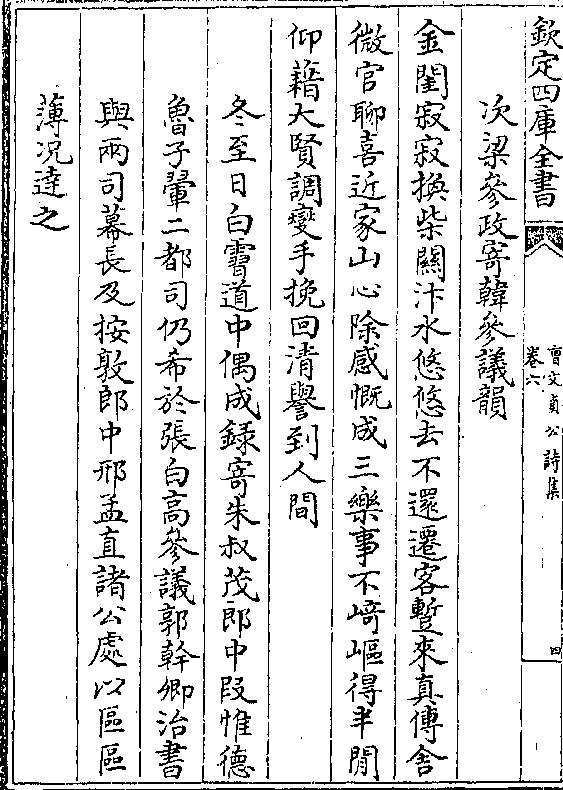 欽定四庫全書
曹文貞公詩集
卷六
四
次梁參政寄韓參議韻
金閨寂寂換柴關汴水悠悠去不還遷客蹔來真傳舍
微官聊喜近家山心除感慨成三樂事不﨑嶇得半閒
仰藉大賢調燮手挽回清譽到人間
冬至日白霫道中偶成録寄朱叔茂郎中段惟德
魯子翬二都司仍希於張白高參議郭幹卿治書
與兩司幕長及按敦郎中邢孟直諸公處以區區
薄况達之